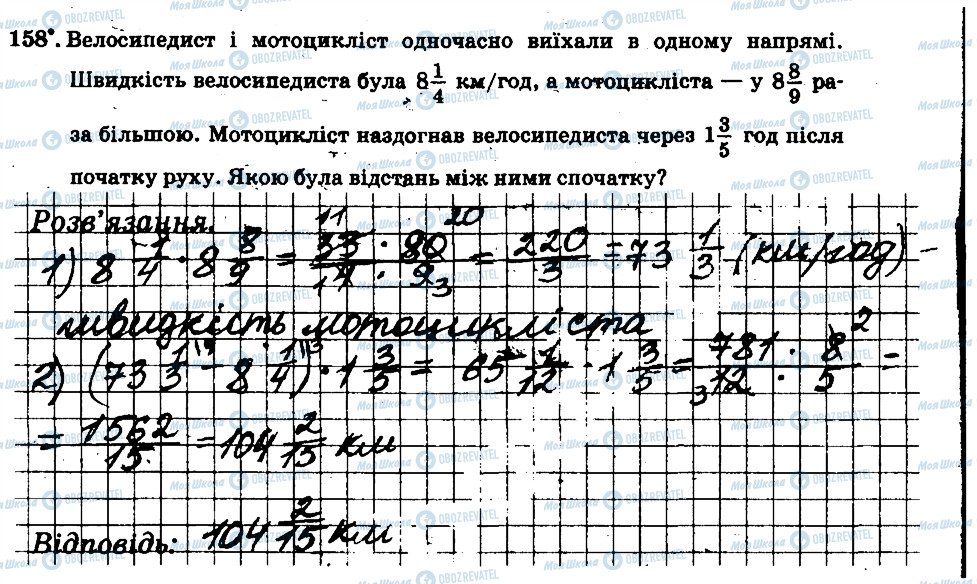 158°. Велосипедист і мотоцикліст одночасно виїхали в одному напрямі.
Швидкість велосипедиста була 8 1/4 км/год, а мотоцикліста — у 8 8/9 ра-
за більшою. Мотоцикліст наздогнав велосипедиста через 1 3/5 год після
початку руху. Якою була відстань між ними спочатку?
Розв'язання.
1) 8 1/4 · 8 8/9 = 33 · 80 / 4 · 9 = 220/3 = 73 1/3 (км/год) –
швидкість мотоцикліста
2) (73 1/3 - 8 1/4) · 1 3/5 = 65 1/12 · 1 3/5 = 781 · 8 / 12 · 5 =
= 1562/15 = 104 2/15 км
Відповідь: 104 2/15 км